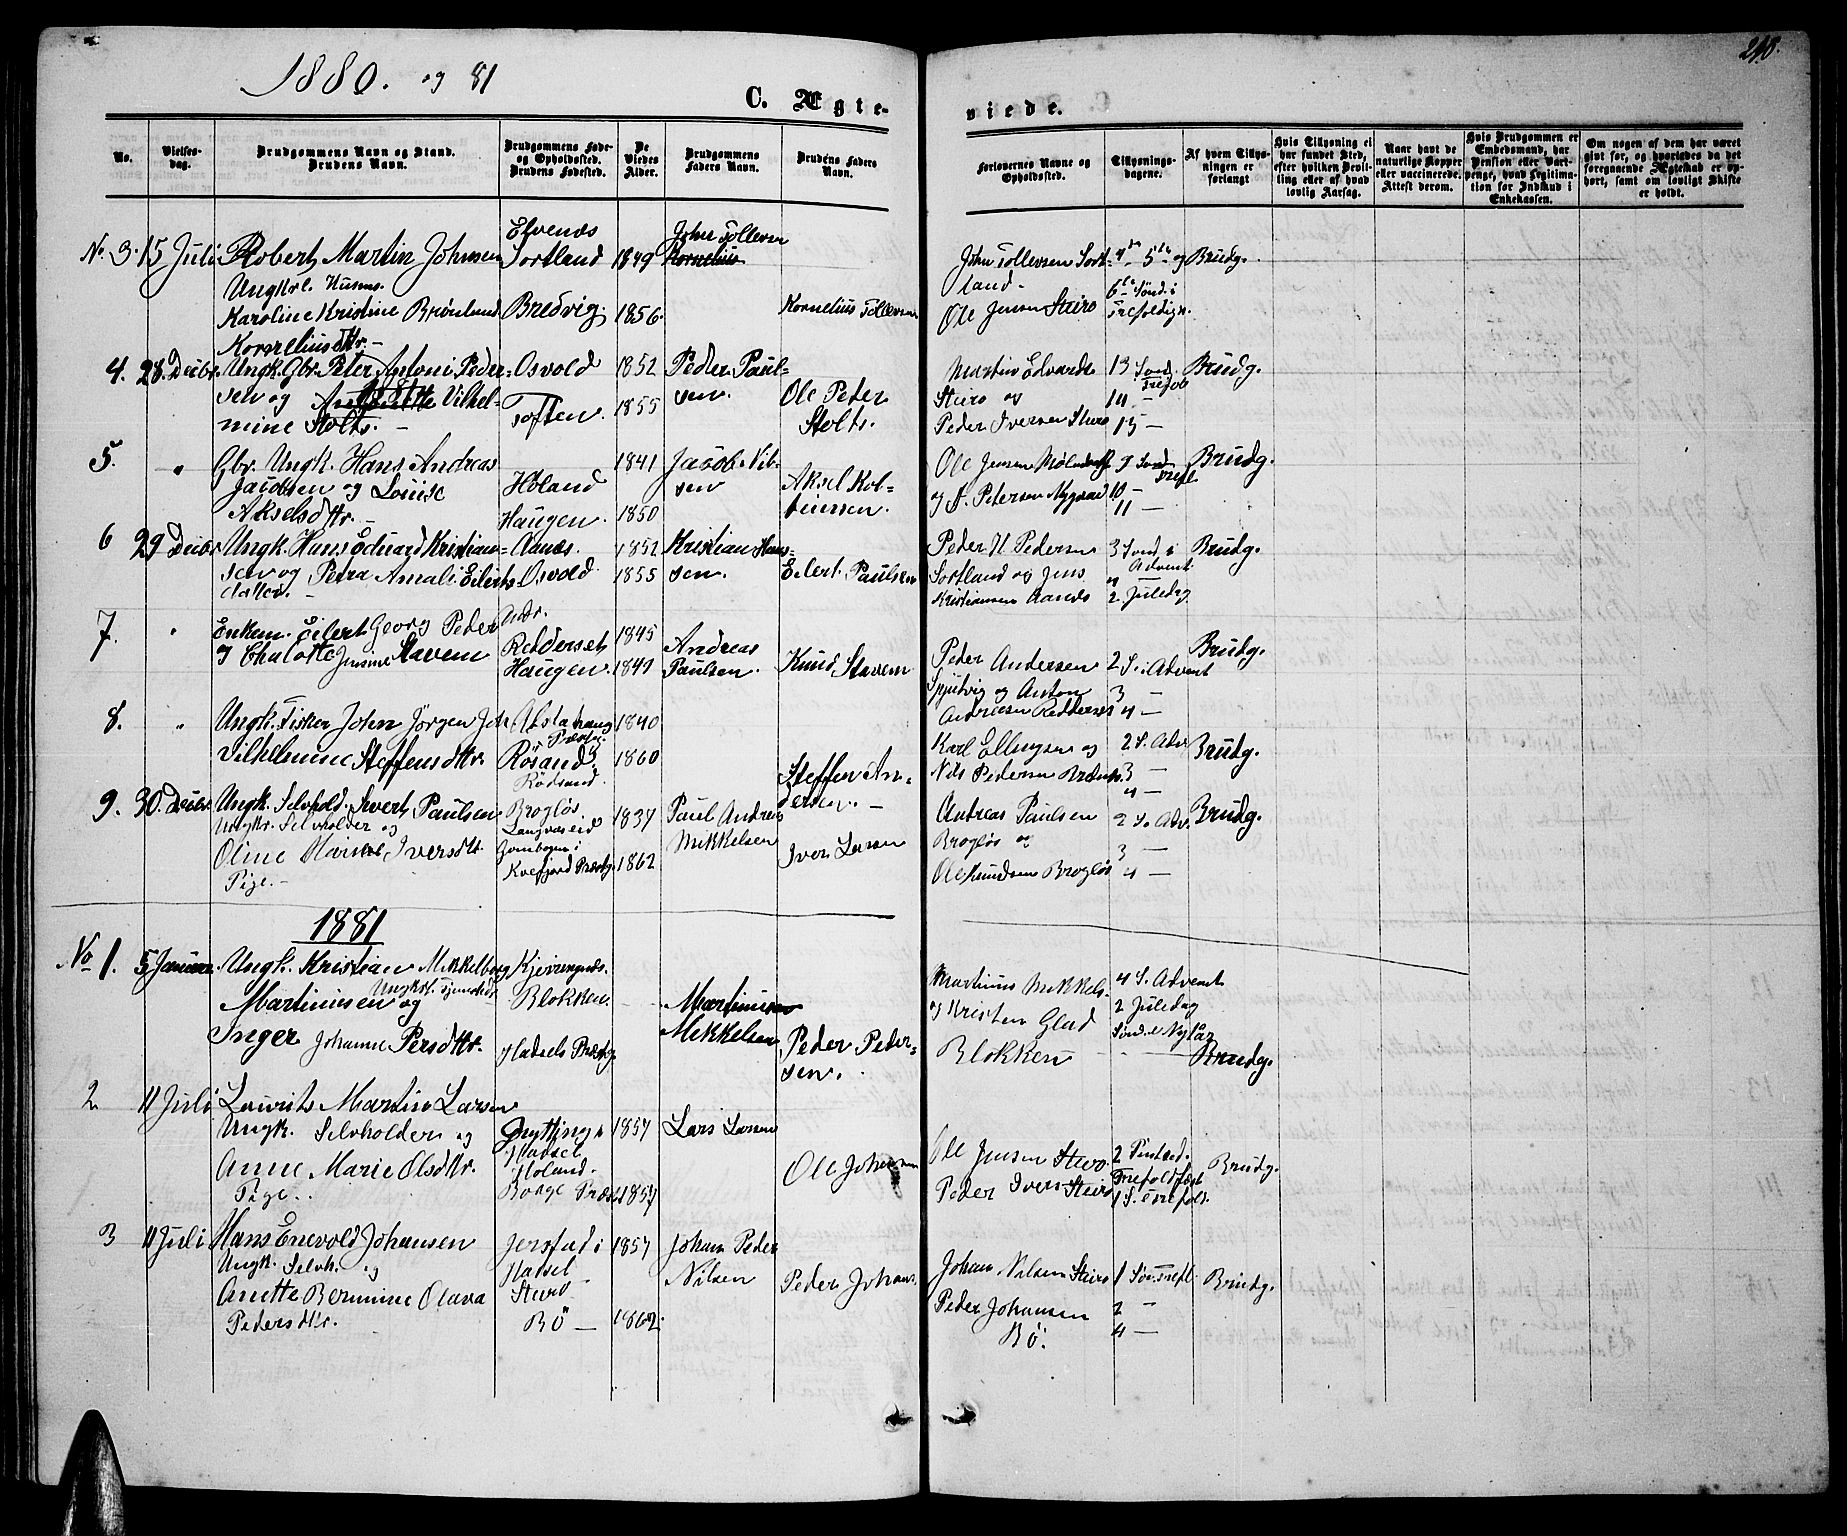 1880. og 81
248.
C. Ægte-
viede.
No.
Vielses-
dag.
Brudgommens Navn og Stand.
Brudens Navn.
Brudgommens Føde-
og Opholdssted.
Brudens Fødested.
De
Viedes
Alder.
Brudgommens
Faders Navn.
Brudens Faders
Navn.
Forlovernes Navne og
Opholdssted.
Tillysnings-
dagene.
Af hvem Tillys-
ningen er
forlangt
Hvis Tillysning ei
har fundet Sted,
efter hvilken Bevil-
ling eller af hvad
lovlig Aarsag.
Naar havt de
naturlige Kopper
eller vaccinerede.
Attest derom.
Hvis Brudgommen er
Embedsmand, har
Pension eller Vart-
penge, hvad Legitima-
tion for Indskud i
Enkekassen.
Om nogen af dem har været
givt før, og hvorledes da det
foregaaende Ægteskab er op-
hørt, samt om lovligt Skifte
er holdt.
No. 3. 15 Juli Robert Martin Johnsen
Ungkrl. Husms.
Karoline Kristine Brønlund
Korneliusdtr. -
Elvenæs
Sortland
Bredvig.
1849
1856.
John Tollevsen
Kornelius
Kornelius Tollevsen
John Tollevsen Sort-
land -
Ole Jensen Steiro
4de 5te og
6te Sønd. i
Trefoldigh.
Brudg.
4. 28. Decbr. Ungk. Gbr. Peter Antoni Peder-
sen og Vilhel-
mine Stolts. -
Osvold
Toften.
1852
1855
Peder Paul-
sen.
Ole Peder
Stolts.
Martin Edvards
Steiro og
Peder Iversen Steiro
13 Sønd.
Trefol.
14 -
15 -
Brudg.
5. " Gbr. Ungk. Hans Andreas
Jacobsen og Louise
Akselsdtr. -
Holand
Haugen.
1841
1850
Jacob Nil-
sen
Aksel Kol-
beinsen.
Ole Jensen
og A. Petersen Nygaard
9 Sønd.
Trefl.
10 -
11 -
Brudg.
6 29 Decbr Ungk. Hans Edvard Kristian-
sen og Petra Amali Eilerts
datter. -
Aanæs.
Osvold
1852
1855
Kristian Hans-
sen.
Eilert Paulsen
Peder N Pedersen
Sortland og Jens
Kristiansen Aanæs
3 Sønd. i
Advent
og
2. Juledag
Brudg.
7. " Enkem. Eilert Georg Peder Andr.
og Chalotte Jensine Stavem
Reddersset
Haugen
1845
1849
Andreas
Paulsen.
Knud Stavem
Peder Andersen
og Anton
Andreasen Redderses
2 S. i Advent
3 -
4 -
Brudg.
8. " Ungk. Fisker John Jörgen Joh
Vilhelmine Steffensdtr.
Alstahaug
Præstg.
Rösand
Rödsand.
1840
1860
Steffen An-
dersen. -
Karl Ellingsen og
Nils Pedersen
2 S. Adv.
3 -
4 -
Brudg.
9. 30. Decbr Ungk. Selvhold. Sivert Paulsen
Ungkr. Selvholder og
Oline Marie Iversdtr.
Pige. -
Brogløs
Langvaseid
i
Kvefjord Præstg.
1837
1862
Paul Andreas
Mikkelsen
Iver Larsen
Andreas Paulsen
Brogløs og
Ole Knudsen Brogløs
2 S. Adv.
3 -
4 -
Brudg.
1881
No 1. 5 Januar. Ungk. Kristian Mikkelborg
Martinusen og
Inger Johanne Persdtr.
Kjeringnæs.
Blokken.
Hadsels Præstg
Martinusen
Mikkelsen
Peder Peder-
sen.
Martinus Mikkels.
og Kristen Glad
Blokken
4 S. Advent
2 Juledag
Sønd. e Nytår
Brudg.
2 11 Juli Laurits Martin Larsen
Ungk. Selvholder og
Anne Marie Olsdtr.
Pige..
Grytting i
Hadsel
Holand.
Borge Præst.
1857
1857
Lars Larsen
Ole Johansen
Ole Jensen Steiro.
Peder Ivers Steiro
2 Pintsed.
Trefoldfest
1 S. Trefold.
Brudg.
3 11 Juli Hans Enevold Johansen
Ungk. Selvh. og
Anette Bermine Olava
Pedersdtr.
Jerstad i
Hadsel
Steiro
Bö -
1857
1862.
Johan Peder
Nilsen
Peder Johans.
Johan Nilsen Steiro
Peder Johansen
Bö.
1 Søn. Trefl.
2 "
4 -
Brudg.